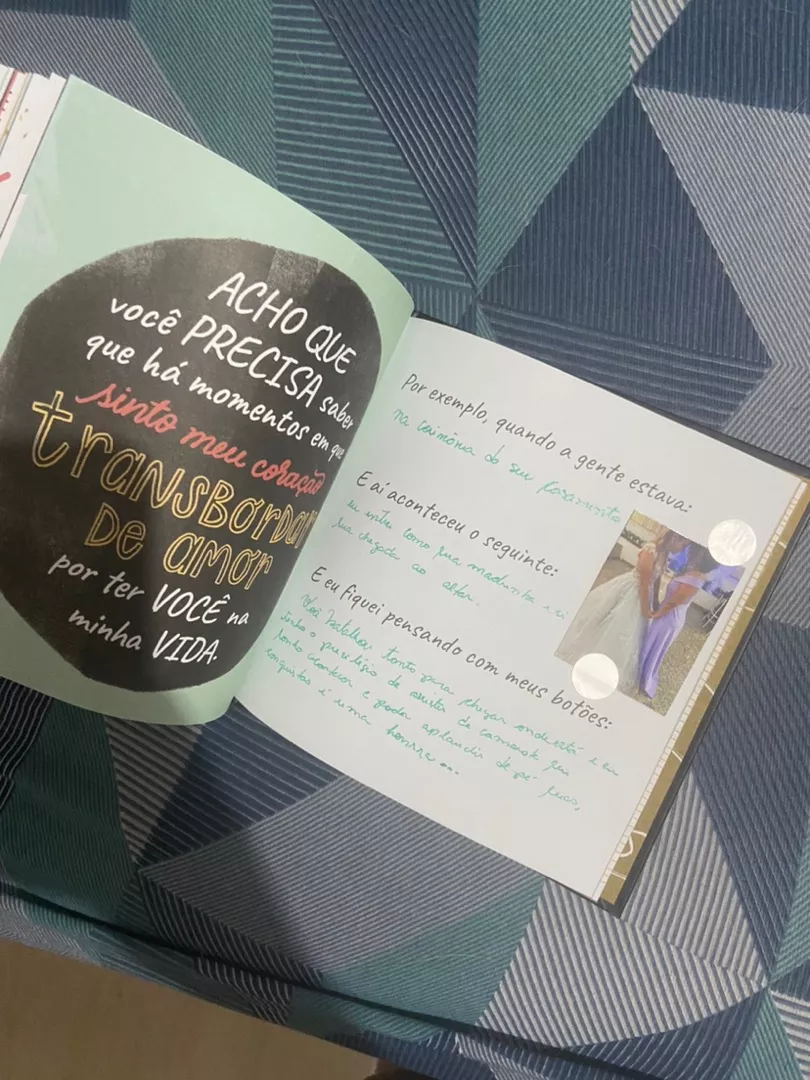 ACHO QUE
você PRECISA saber
que há momentos em que
sinto meu coração
transbordar
DE amor
por ter VOCÊ na
minha VIDA.
Por exemplo, quando a gente estava:
na do seu casamento
E aí aconteceu o seguinte:
eu entrei como sua madrinha e vi
sua chegada ao altar.
E eu fiquei pensando com meus botões:
Você batalhou tanto para chegar onde está e eu
tenho o privilégio de assistir de camarote seu
sonho acontecer e poder aplaudir de pé suas
conquistas é uma honra...